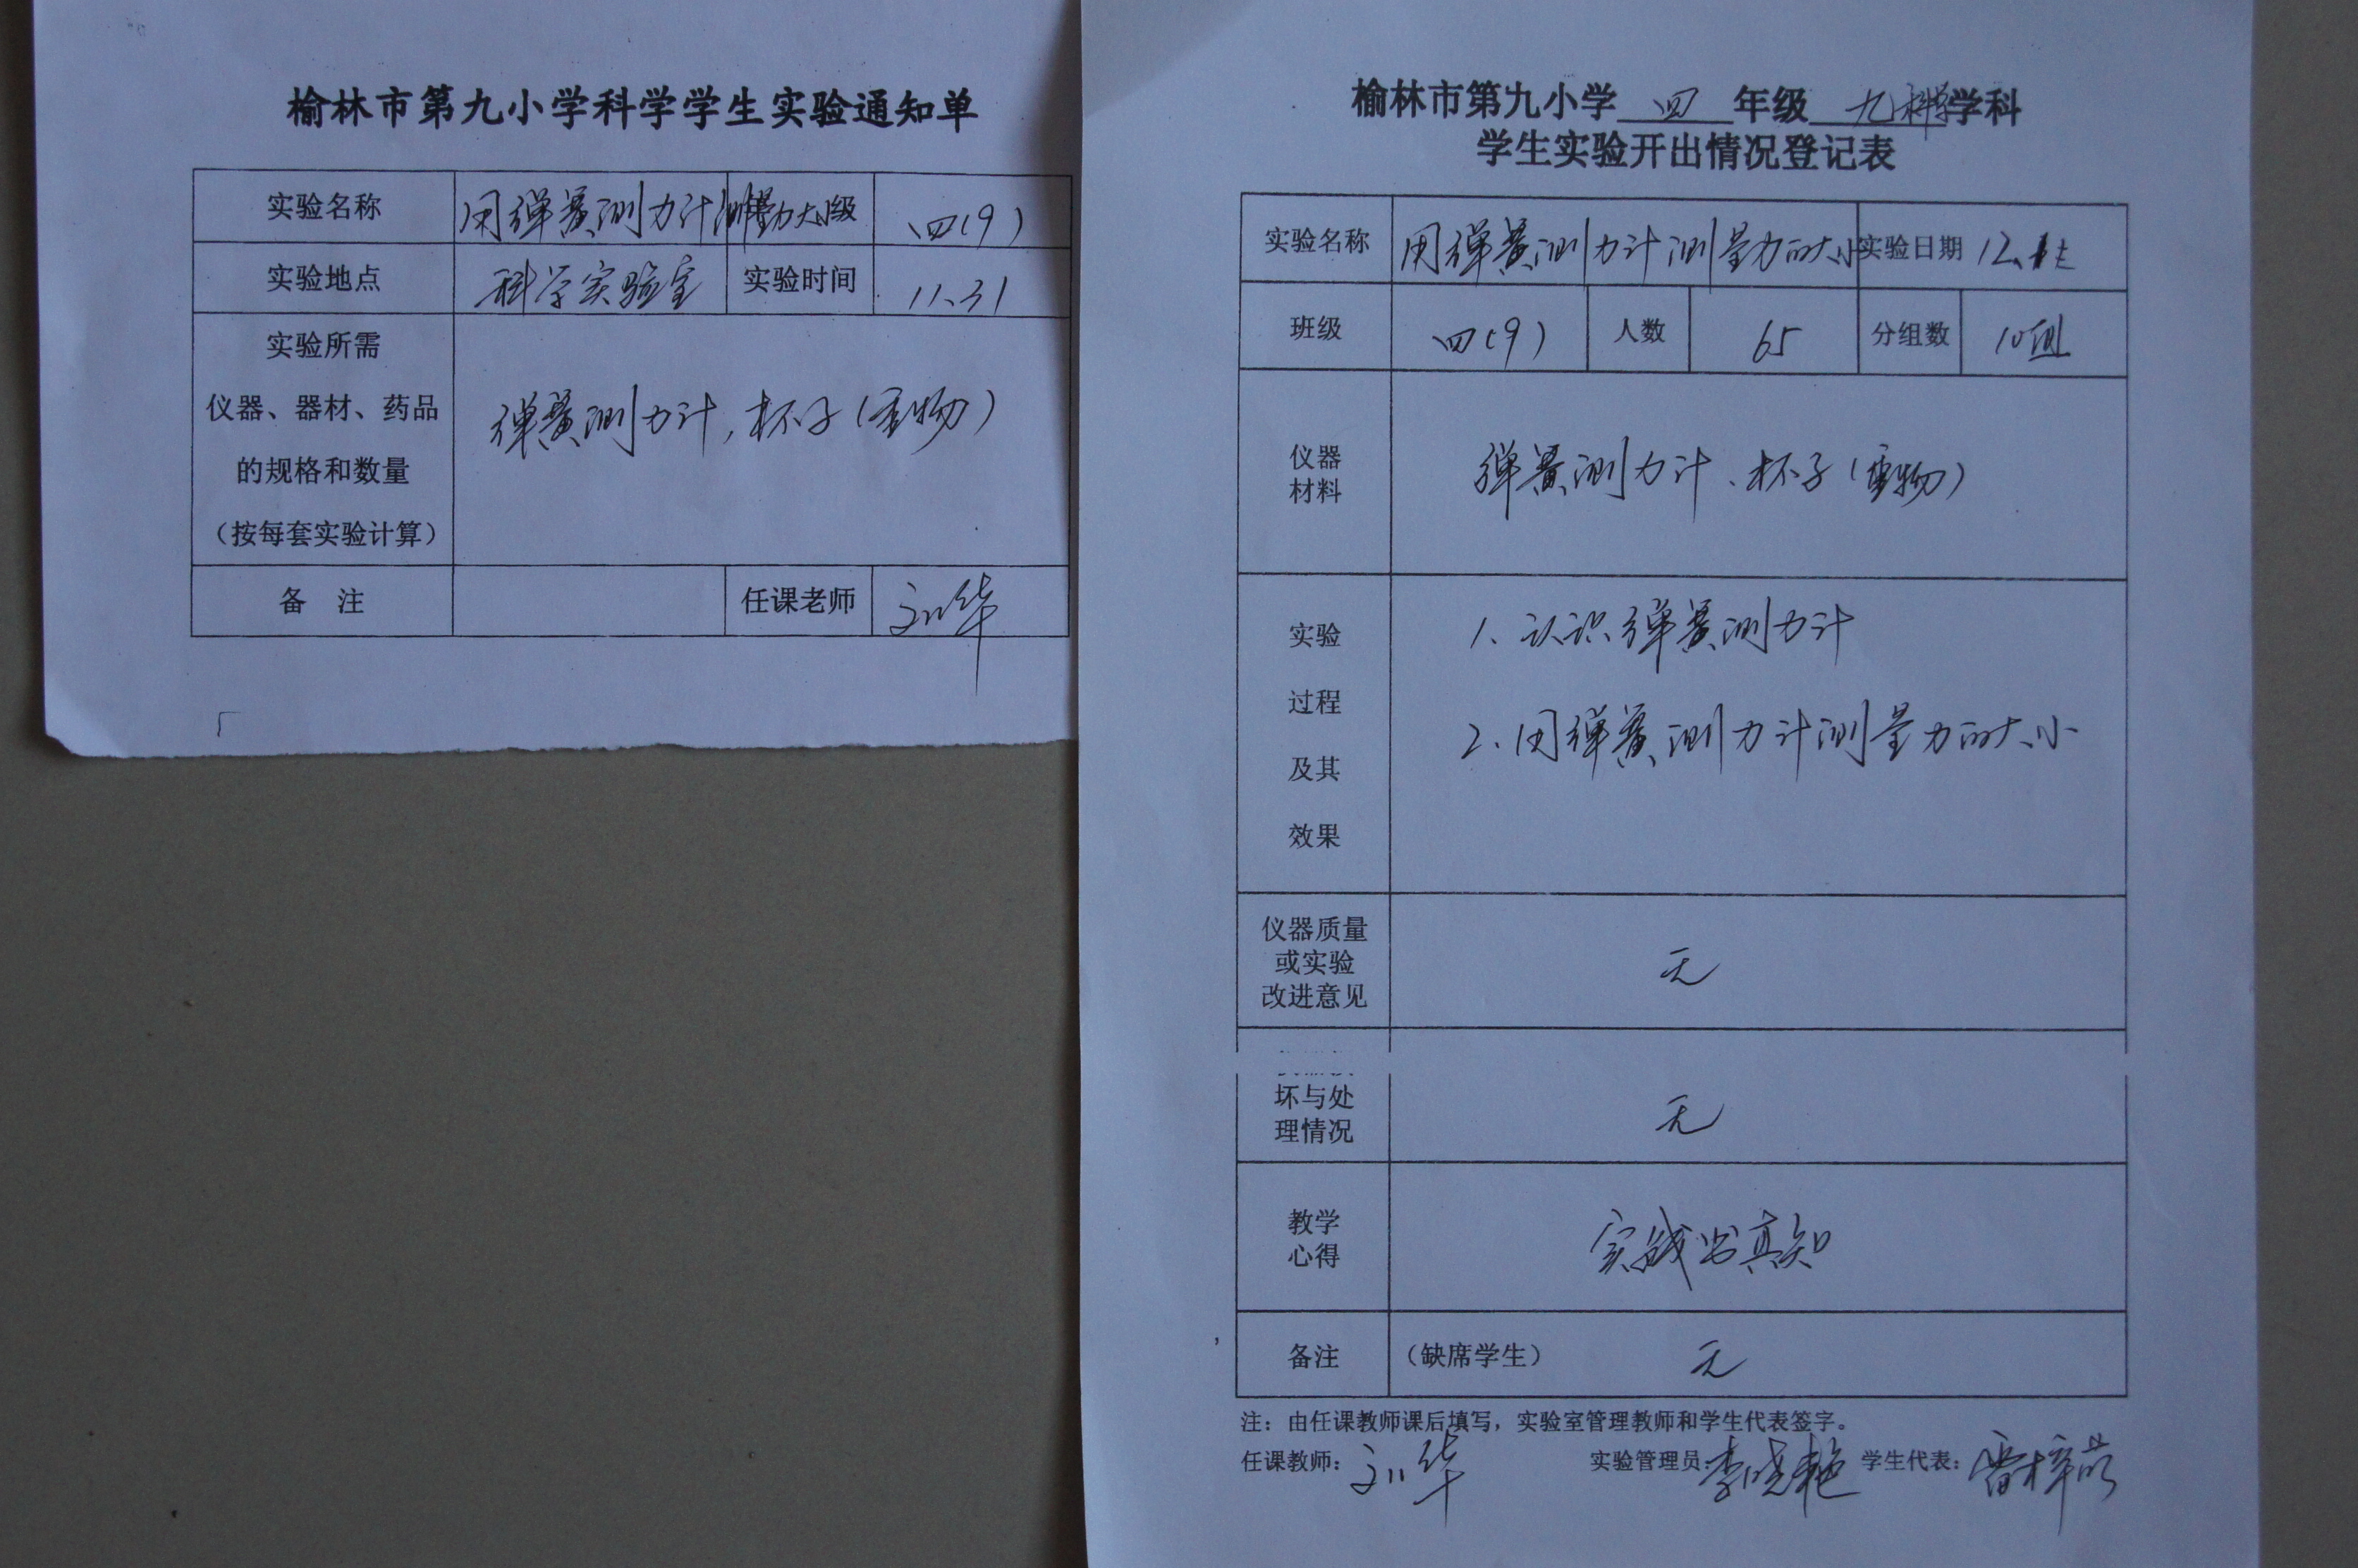 榆林市第九小学科学学生实验通知单
实验名称 用弹簧测力计测量力大小 级 四(9)
实验地点 科学实验室 实验时间 11.31
实验所需
仪器、器材、药品
的规格和数量
（按每套实验计算）
弹簧测力计，杯子（重物）
备 注 任课老师 刘华
榆林市第九小学 四 年级 九科学 学科
学生实验开出情况登记表
实验名称 用弹簧测力计测量力的大小 实验日期 12.
班级 四(9) 人数 65 分组数 10组
仪器
材料
弹簧测力计、杯子（重物）
实验
过程
及其
效果
1、认识弹簧测力计
2、用弹簧测力计测量力的大小
仪器质量
或实验
改进意见
无
坏与处
理情况
无
教学
心得
实践出真知
备注 （缺席学生） 无
注：由任课教师课后填写，实验室管理教师和学生代表签字。
任课教师：刘华 实验管理员：李晓艳 学生代表：雷梓